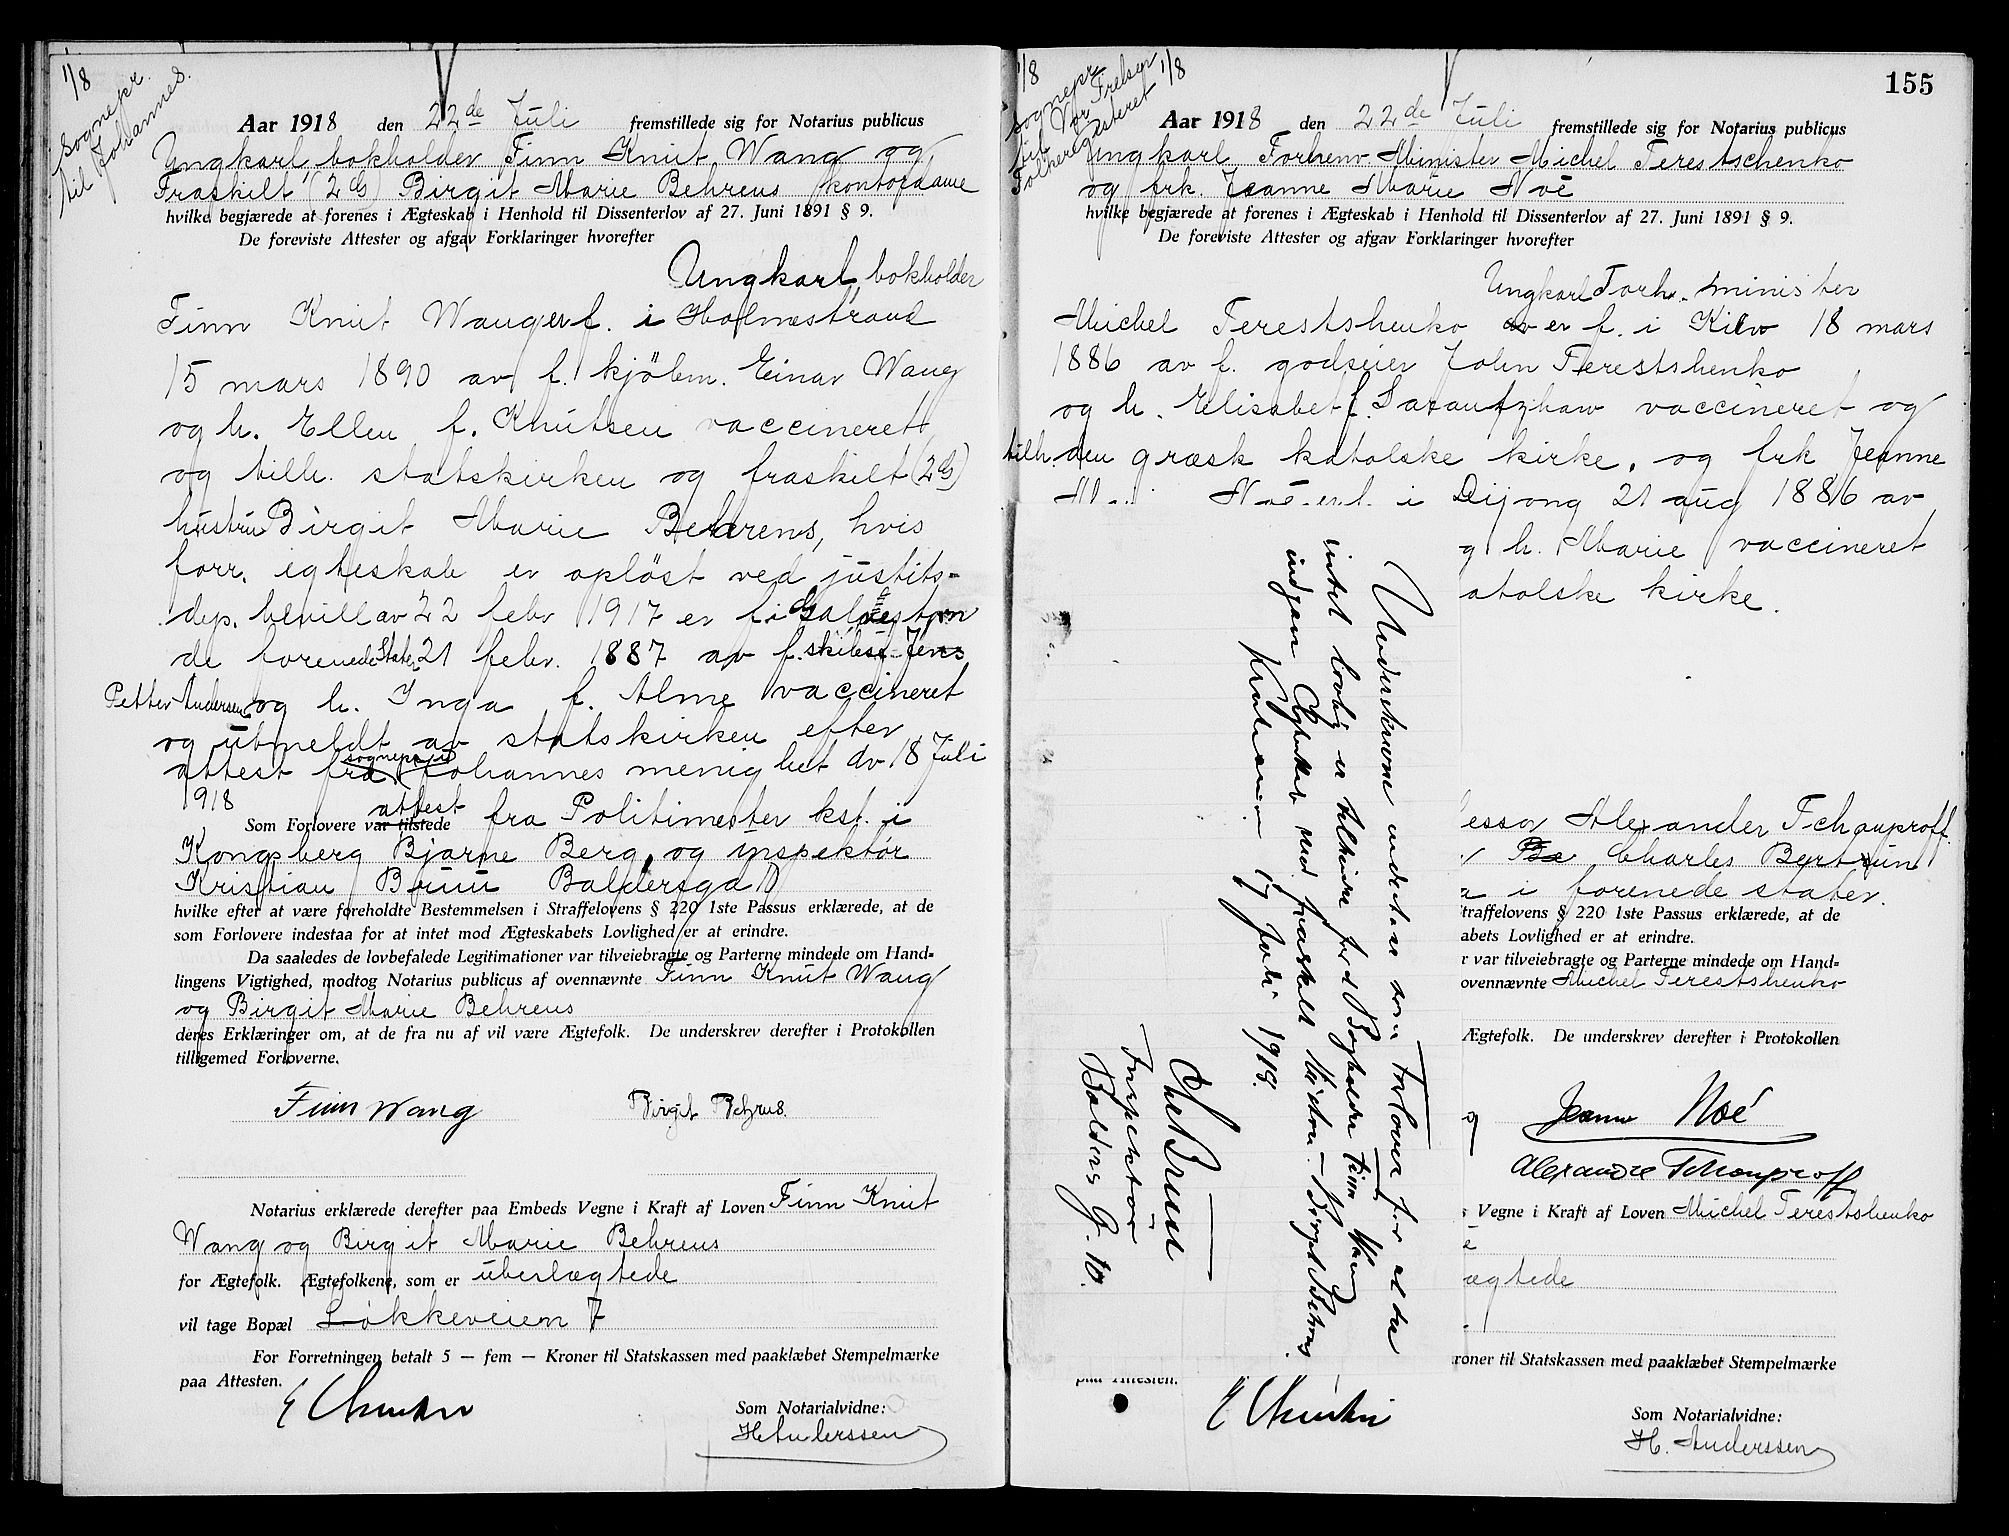 1/8
Sognepr.
til Johannes.
Aar 1918 den 22de Juli fremstillede sig for Notarius publicus
Ungkarl bokholder Finn Knut Wang og
Fraskilt (2G) Birgit Marie Behrens kontordame
hvilke begjærede at forenes i Ægteskab i Henhold til Dissenterlov af 27. Juni 1891 § 9.
De foreviste Attester og afgav Forklaringer hvorefter
Ungkarl, bokholder
Finn Knut Wang er f. i Holmestrand
15 mars 1890 av f. kjöbm. Einar Wang
og h. Ellen f. Knutsen vaccineret
og tilh. statskirken og fraskilt (2G)
hustru Birgit Marie Behrens, hvis
forr. egteskab er opløst ved justits-
dep. bevill av 22 febr 1917 er f. i Galveston
de forenede Stater 21 febr. 1887 av f. skibsf. Jens
Petter Andersen og h. Inga f. Alme vaccineret
og utmeldt av statskirken efter
attest fra sognepr. i Johannes menighet av 18 Juli
1918
Som Forlovere var tilstede attest fra Politimester kst. i
Kongsberg Bjarne Berg og inspektør
Kristian Bruu Baldersga 10
hvilke efter at være foreholdte Bestemmelsen i Straffelovens § 220 1ste Passus erklærede, at de
som Forlovere indestaa for at intet mod Ægteskabets Lovlighed er at erindre.
Da saaledes de lovbefalede Legitimationer var tilveiebragte og Parterne mindede om Hand-
lingens Vigtighed, modtog Notarius publicus af ovennævnte Finn Knut Wang
og Birgit Marie Behrens
deres Erklæringer om, at de fra nu af vil være Ægtefolk. De underskrev derefter i Protokollen
tilligemed Forloverne.
Finn Wang Birgit Behrens.
Notarius erklærede derefter paa Embeds Vegne i Kraft af Loven Finn Knut
Wang og Birgit Marie Behrens
for Ægtefolk. Ægtefolkene, som er ubeslægtede
vil tage Bopæl Løkkeveien 7
For Forretningen betalt 5 — fem — Kroner til Statskassen med paaklæbet Stempelmærke
paa Attesten.
Som Notarialvidne:
H Anderssen
155
1/8
sognepr
til Vor Frelser 1/8
Folkeregisteret
Aar 1918 den 22de Juli fremstillede sig for Notarius publicus
Ungkarl Forhenv Minister Michel Terestschenko
og frk. Jeanne Marie Noë
hvilke begjærede at forenes i Ægteskab i Henhold til Dissenterlov af 27. Juni 1891 § 9.
De foreviste Attester og afgav Forklaringer hvorefter
Ungkarl Forh. minister
Michel Terestshenko er f. i Kiev 18 mars
1886 av f. godseier John Terestshenko
og h. Elisabet f. vaccineret og
tilh. den græsk katolske kirke. og frk Jeanne
Noë er f. i Dijong 21 aug 1886 av
g h. Marie vaccineret
atolske kirke.
essor Alexander Tchouproff.
Charles Bertrun
a i forenede stater.
traffelovens § 220 1ste Passus erklærede, at de
abets Lovlighed er at erindre.
r var tilveiebragte og Parterne mindede om Hand-
ovennævnte Michel Terestshenko
Ægtefolk. De underskrev derefter i Protokollen
Jeanne Noé
Alexandre Tchouproff
s Vegne i Kraft af Loven Michel Terestshenko
ë
ægtede
kroner til Statskassen med paaklæbet Stempelmærke
paa Attesten.
Som Notarialvidne:
H. Anderssen
Undertegnede indestaar som Forlover for at der
intet lovlig er tilhinder for at Bogholder Finn Wang
indgaar Ægteskab med fraskilt Birgit Behrens.
Kristiania 17 Juli 1918.
Chr Bruu
Inspektør
Balders G. 10.